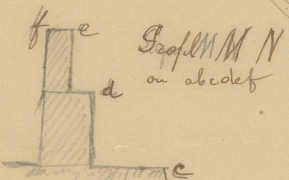 f e
Profil M N
on abcdef
d
c